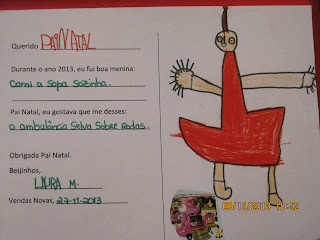 Querido PAI NATAL
Durante o ano 2013, eu fui boa menina:
Comi a Sopa Sozinha.
Pai Natal, eu gostava que me desses:
o ambulância Selva Sobre Rodas.
Obrigada Pai Natal.
Beijinhos,
LAURA M.
Vendas Novas, 27-11-2013